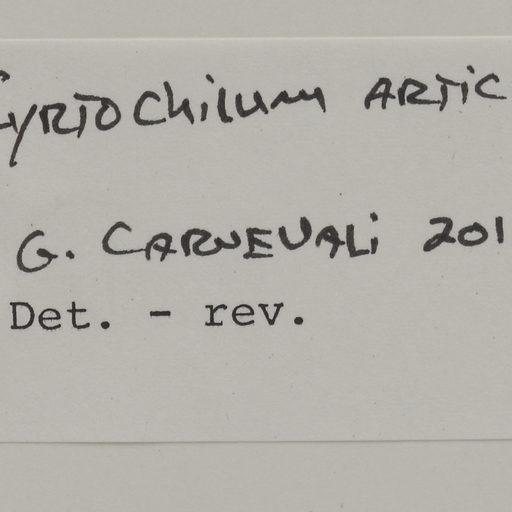 Cyrtochilum ARTIC
G. CARNEVALi 201
Det. - rev.